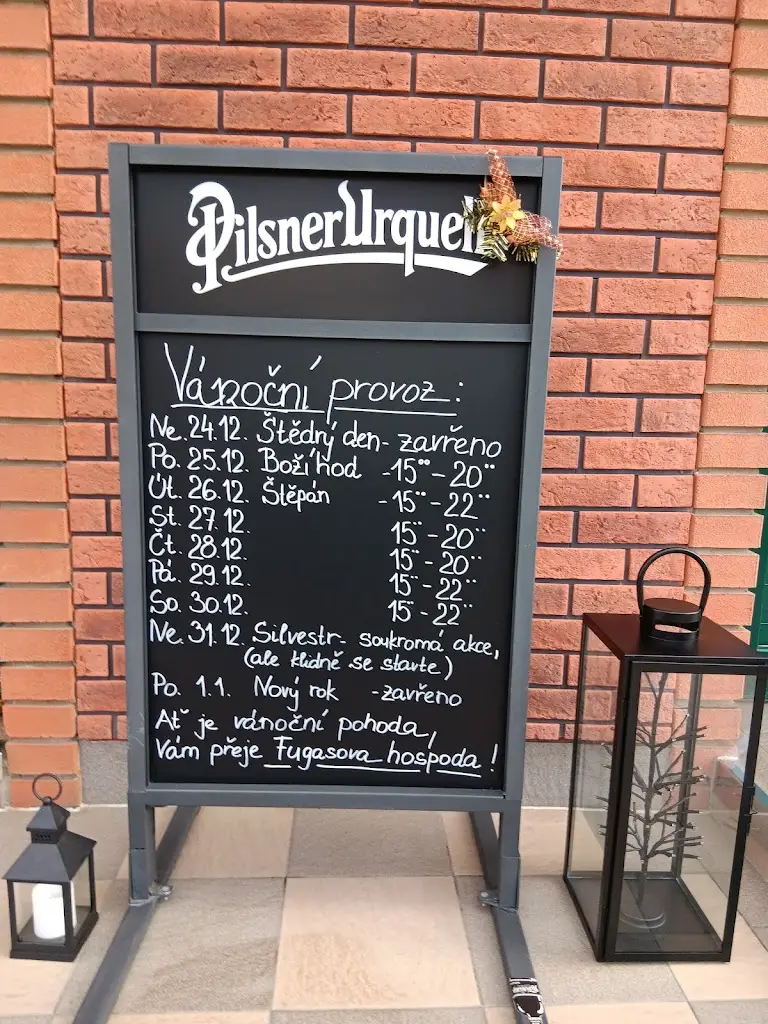 Pilsner Urquell
Vánoční provoz:
Ne. 24.12. Štědrý den - zavřeno
Po. 25.12. Boží hod - 15⁰⁰ - 20⁰⁰
Út. 26.12. Štěpán - 15⁰⁰ - 22⁰⁰
St. 27.12. 15⁰⁰ - 20⁰⁰
Čt. 28.12. 15⁰⁰ - 20⁰⁰
Pá. 29.12. 15⁰⁰ - 22⁰⁰
So. 30.12. 15⁰⁰ - 22⁰⁰
Ne. 31.12. Silvestr - soukromá akce,
(ale klidně se stavte)
Po. 1.1. Nový rok - zavřeno
Ať je vánoční pohoda,
Vám přeje Fugasova hospoda!